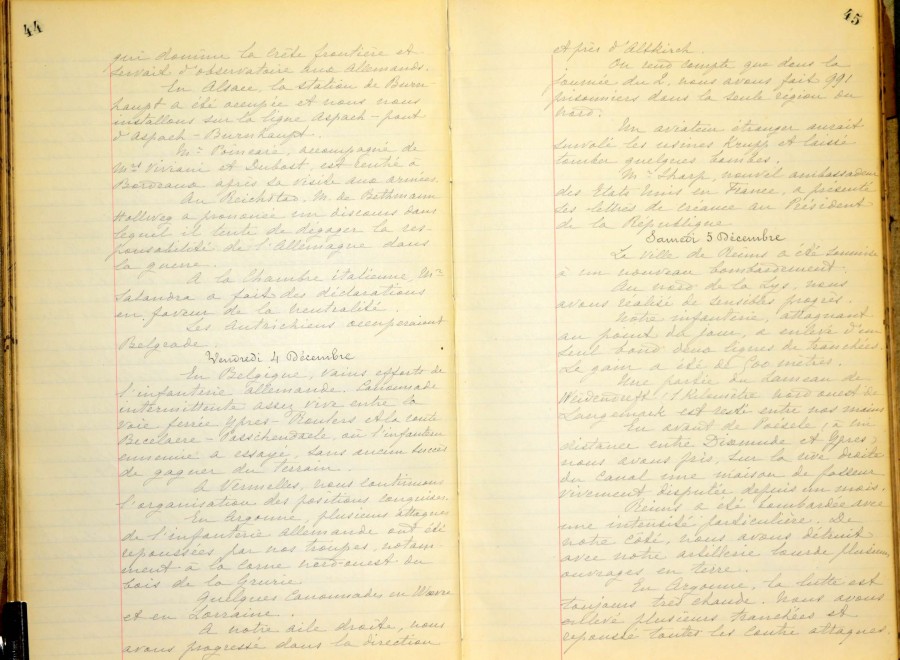 44
qui domine la crête frontière et
servait d'observatoire aux Allemands.
En Alsace, la station de Burn
haupt a été occupée et nous nous
installons sur la ligne Aspach-pont
d'Aspach-Burnhaupt.
Mr Poincaré, accompagné de
Mrs Viviani et Dubost, est rentré à
Bordeaux après sa visite aux armées.
Au Reichstag, M. de Bethmann
Hollweg a prononcé un discours dans
lequel il tente de dégager la res-
ponsabilité de l'Allemagne dans
la guerre.
A la Chambre italienne, Mr
Salandra a fait des déclarations
en faveur de la neutralité.
Les Autrichiens occuperaient
Belgrade.
Vendredi 4 Décembre
En Belgique, vains efforts de
l'infanterie allemande. Canonnade
intermittente assez vive entre la
voie ferrée Ypres-Roulers et la route
Becelaere-Passchendaele, où l'infanterie
ennemie a essayé, sans aucun succès
de gagner du terrain.
A Vermelles, nous continuons
l'organisation des positions conquises.
En Argonne, plusieurs attaques
de l'infanterie allemande ont été
repoussées par nos troupes, notam-
ment à la corne nord-ouest du
bois de la Grurie.
Quelques canonnades en Wœvre
et en Lorraine.
A notre aile droite, nous
avons progressé dans la direction
45
et près d'Altkirch.
On rend compte que dans la
journée du 2, nous avons fait 991
prisonniers dans la seule région du
nord.
Un aviateur étranger aurait
survolé les usines Krupp et laissé
tomber quelques bombes.
Mr Sharp, nouvel ambassadeur
des Etats Unis en France, a présenté
ses lettres de créance au Président
de la République.
Samedi 5 Décembre
La ville de Reims a été soumise
à un nouveau bombardement.
Au nord de la Lys, nous
avons réalisé de sensibles progrès.
Notre infanterie, attaquant
au point du jour, a enlevé d'un
seul bond deux lignes de tranchées.
Le gain a été de 500 mètres.
Une partie du hameau de
Weidendreft (1 kilomètre nord ouest de
Langemark est resté entre nos mains
En avant de Poësele, à
distance entre Dixmude et Ypres,
nous avons pris, sur la rive droite
du canal une maison de passeur
vivement disputée depuis un mois.
Reims a été bombardée avec
une intensité particulière. De
notre côté, nous avons détruit
avec notre artillerie lourde plusieurs
ouvrages en terre.
En Argonne, la lutte est
toujours très chaude. Nous avons
enlevé plusieurs tranchées et
repoussé toutes les contre attaques.